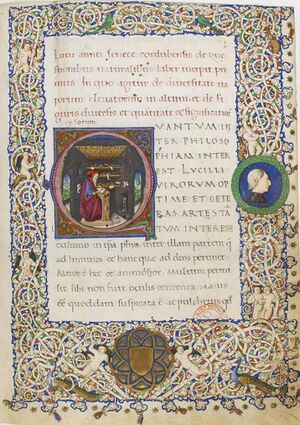 Lutii annei senece cordubensis de que
stionibus naturalibus liber incipit pri
mus. In quo agitur de diversitate va
porum elevatorum in altum et de fi
guris diversis et quantitate et significatione
ipsorum
QVANTVM IN
TER PHILOSO
PHIAM INTER
EST LVCILLI
VIRORVM OP
TIME ET CETE
RAS ARTES TA
TVM INTERESSE
existimo in ipa phia inter illam partem q
ad homines et hanc que ad deos pertinet
Altior e hec et animosior. Multum permi
sit sibi non fuit oculis contenta. Maius
ee quoddam suspicata e ac pulchrius qd